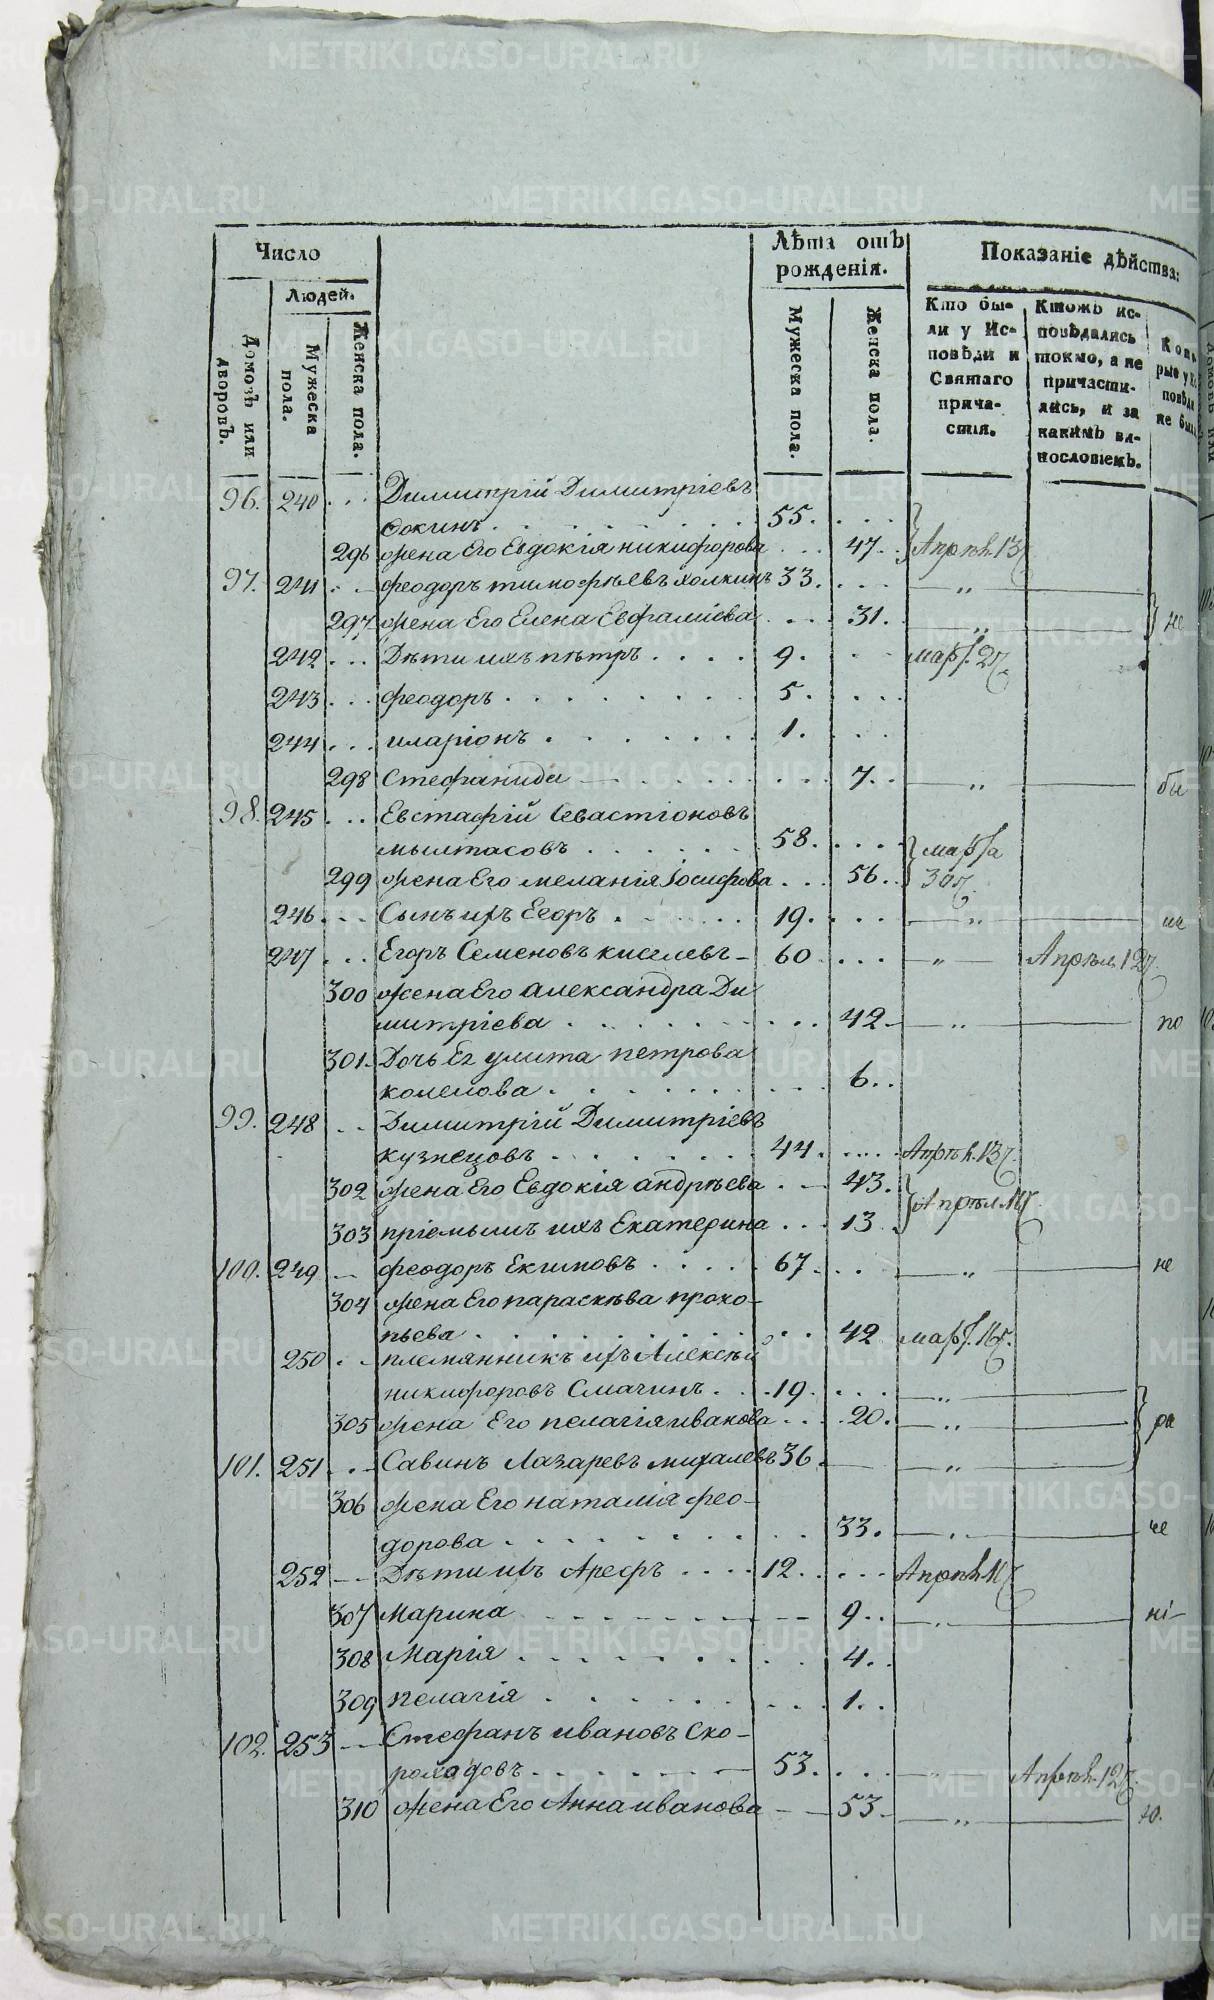 Число
Людей.
Домовъ или дворовъ.
Мужеска пола.
Женска пола.
Лѣта отъ рожденія.
Мужеска пола.
Женска пола.
Показаніе дѣйства:
Кто были у Исповѣди и Святаго причастія.
Ктожъ исповѣдались токмо, а не причастились, и за какимъ винословіемъ.
96. 240 . . . Димитрій Димитріевъ
Фокинъ . . . 55. . . .
296 жена Его Евдокія никифорова . . . 47. Апрѣл. 13
97. 241 . . феодоръ тимофѣевъ холкинъ 33. . . . — „ —
297 жена Его Елена Евфаміева . . . 31. — „ — не
242 . . . Дѣти ихъ пѣтръ . . . . 9. . . март. 27
243 . . . феодоръ . . . 5. . . .
244 . . . иларіонъ . . . 1. . . .
298 Стефанида — . . . 7. . — „ — бы
98. 245 . . . Евстафій Севастіоновъ
мылтасовъ . . . 58. . . . марта
299 жена Его меланія Іосифова . . . 56. . 30
246 . . . Сынъ ихъ Егоръ . . . 19. . . . — „ —
247 . . . Егоръ Семеновъ киселевъ — 60 . . . — „ — Апрѣл. 12
300 жена Его Александра Ди
митріева . . . 42. — „ — по
301. Дочь Ег улита петрова
колелова . . . 6. .
99. 248 . . Димитрій Димитріевъ
кузнецовъ . . . 44. . . . Апрѣл. 13
302 жена Его Евдокія андрѣева . — 43.
303 пріемышъ ихъ Екатерина . . . 13. Апрѣл.
100. 249 — феодоръ Екимовъ . . . . 67. . . — „ — не
304 жена Его параскѣва проко-
пьева . . . 42 март. 16
250 . — племянникъ ихъ Алексѣй
никифоровъ Смагинъ . . . 19. . . . — „ —
305 жена Его пелагія иванова . . . 20. — „ — ра
101. 251 . — Савинъ Лазаревъ михалевъ 36. — — „ —
306 жена Его наталія фео-
дорова . . . 33. — „ — че
252 — Дѣти ихъ Арефъ . . . . 12. . . . Апрѣл.
307 Марина — — — 9. . — „ — ні-
308 Марія . . . 4. .
309 пелагія . . . 1. .
102. 253 — Стефанъ ивановъ Ско-
роходовъ . . . 53. . . . — Апрѣл. 12
310 жена Его Анна иванова — — 53. — „ — ю.
METRIKI.GASO-URAL.RU